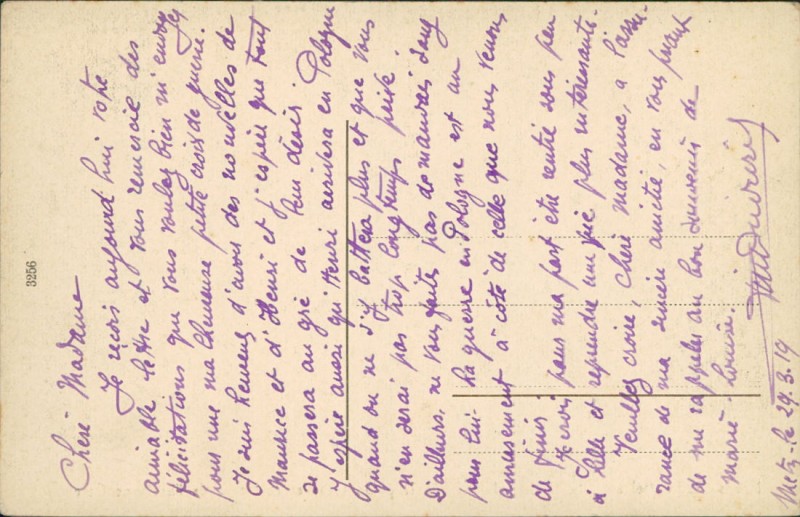 Chère Madame
Je reçois aujourd'hui votre
aimable lettre et vous remercie des
félicitations que vous voulez bien m'envoyer
pour une malheureuse petite croix de guerre.
Je suis heureux d'avoir des nouvelles de
Maurice et d'Henri et j'espère que tout
se passera au gré de leur désir.
J'espère aussi qu'Henri arrivera en Pologne
quand on ne s'y battera plus et que vous
n'en serai pas trop longtemps privé
D'ailleurs ne vous faites pas de mauvais sang
pour lui. La guerre en Pologne est un
amusement à côté de celle que nous venons
de finir.
Je crois pour ma part être rentré sous peu
à Lille et reprendre une vie plus intéressante.
Veuillez croire, chère madame, à l'assu-
rance de ma amitié, en vous priant
de me rappeler au bon souvenir de
marie-Louise.
Metz - le 29.3.19
3256